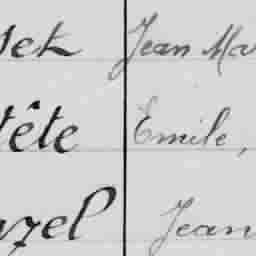 Jean Ma
tête Emile,
zel Jean